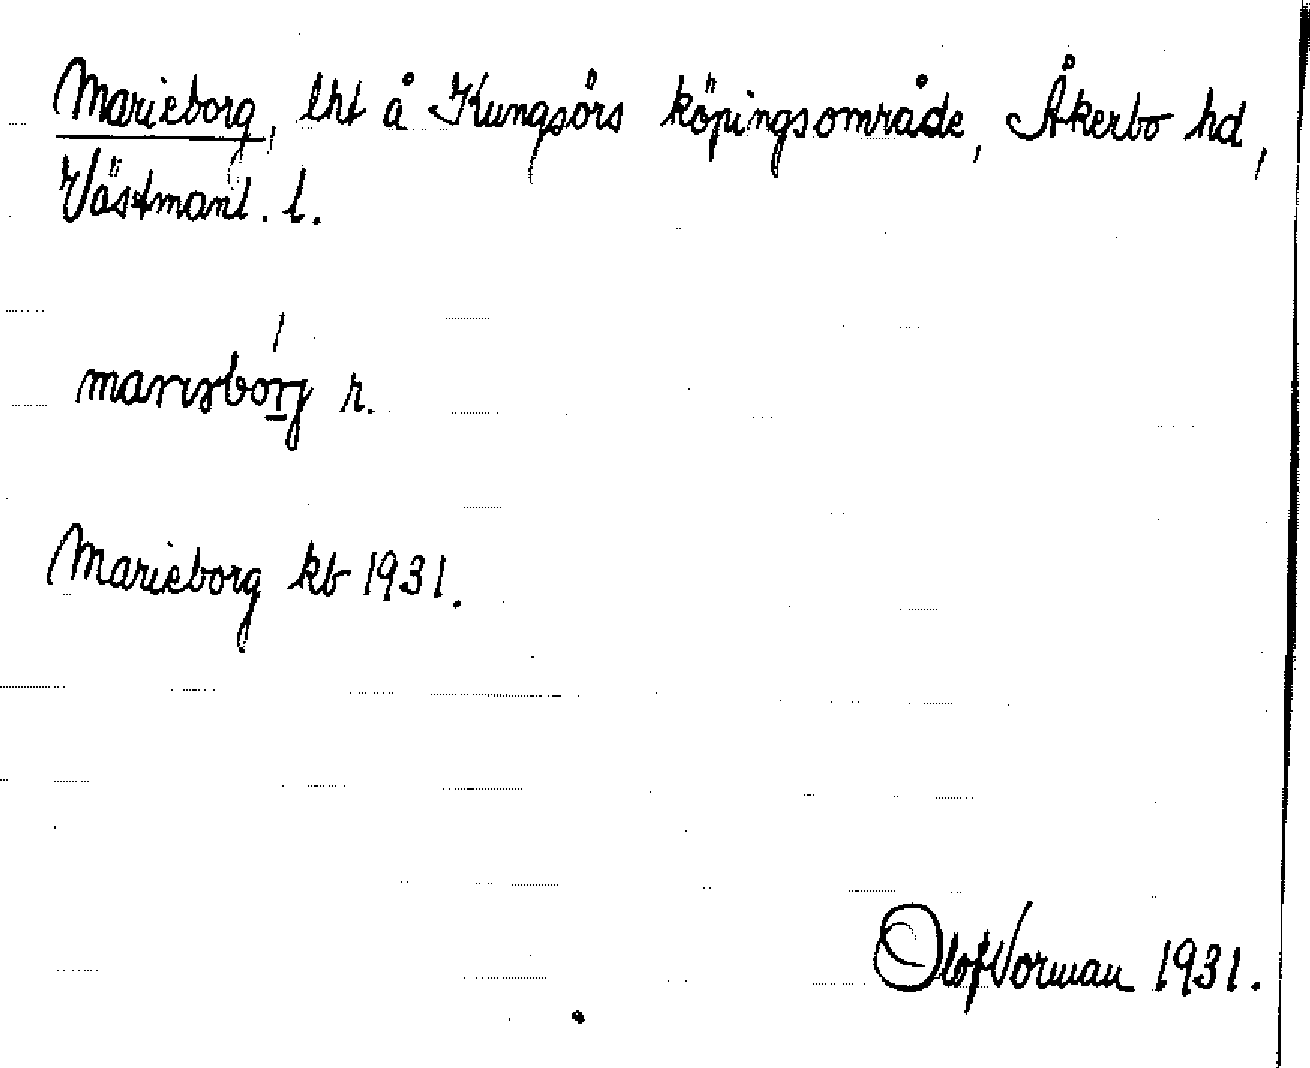 Marieborg, lht å Kungsörs köpingsområde, Åkerbo hd,
Västmanl. l.
r.
Marieborg kb 1931.
Olof Vorman 1931.